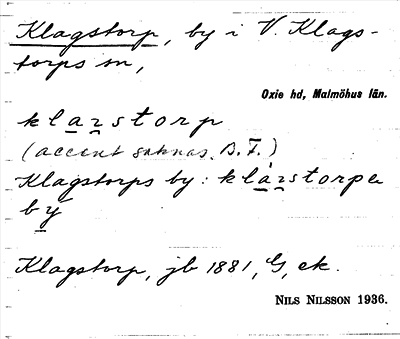 Klagstorp, by i V. Klags-
torps sn,
Oxie hd, Malmöhus län.
klazstorp
(accent saknas. B. F.)
Klagstorps by: klàzstorpa
by
Klagstorp, jb 1881, G, ek.
NILS NILSSON 1936.